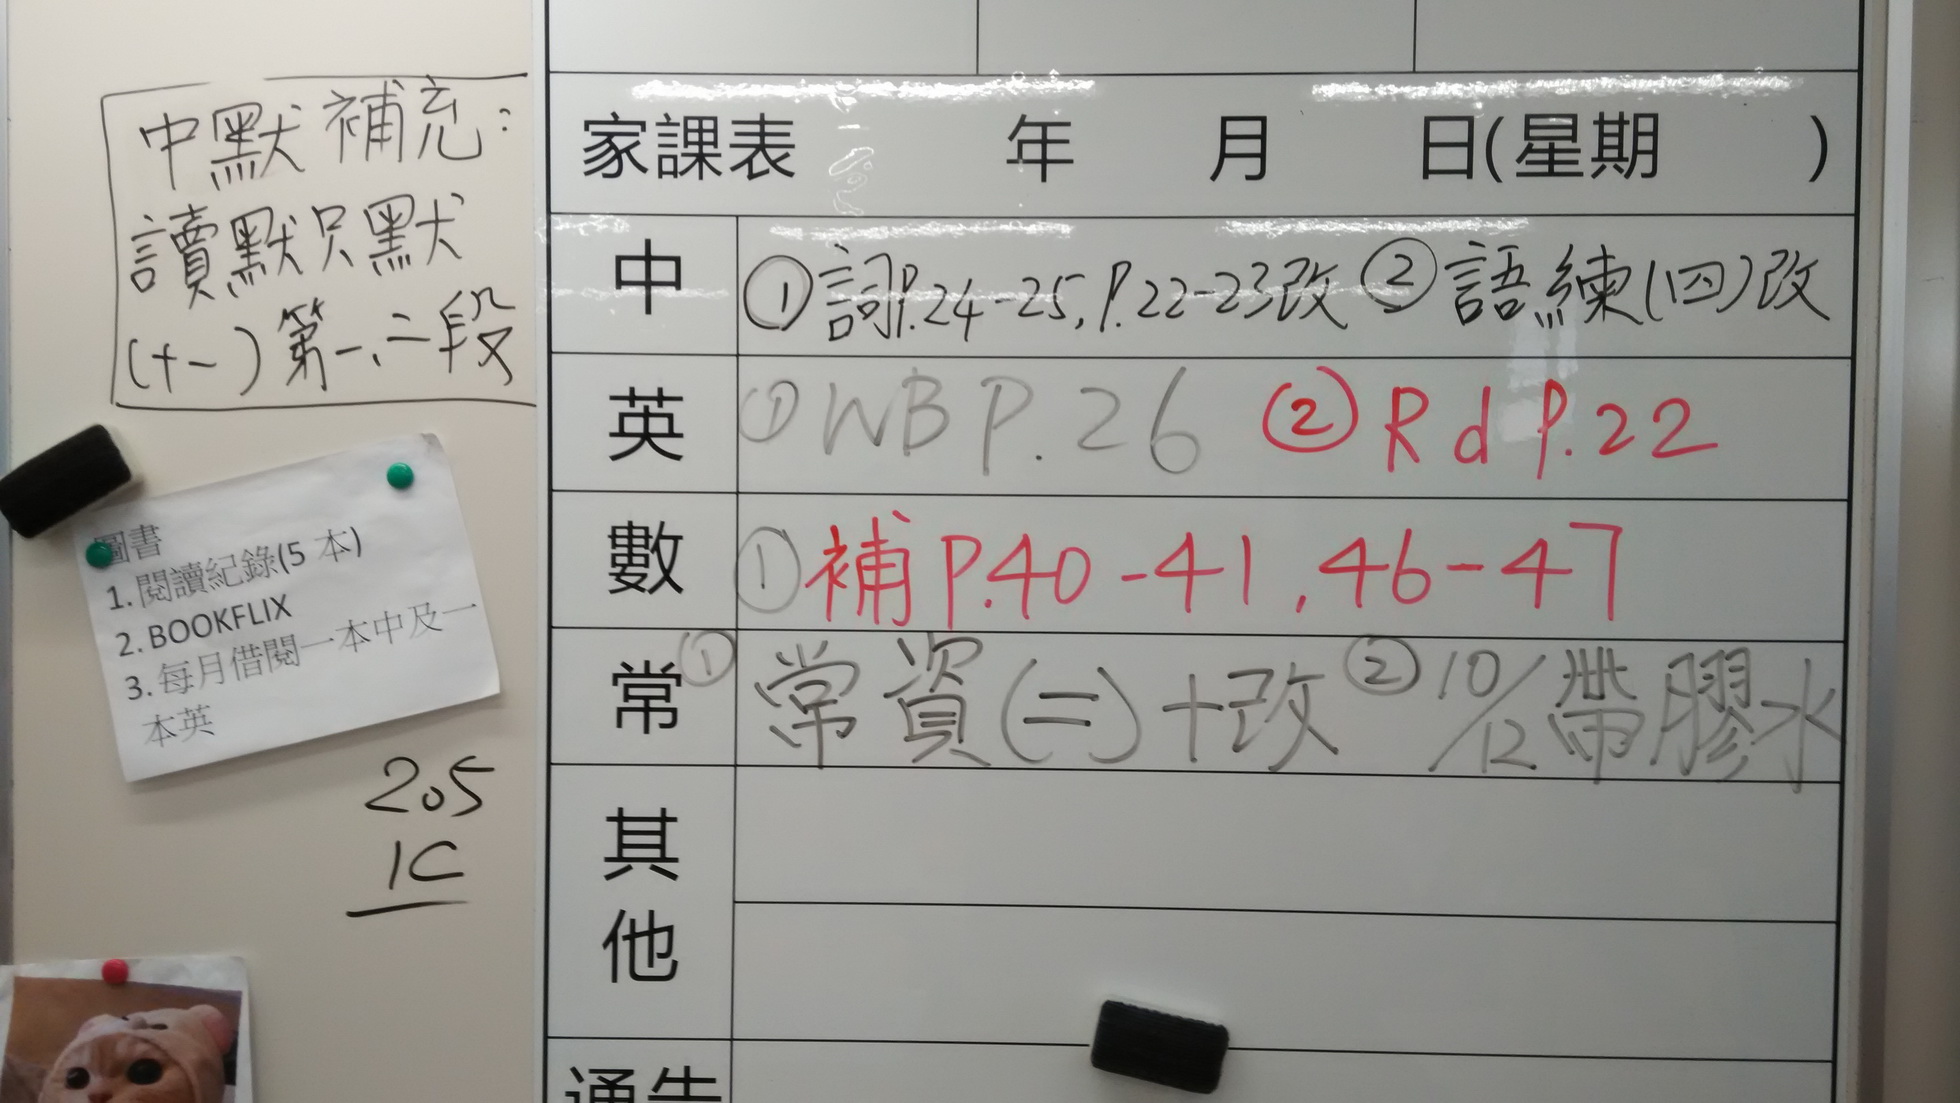 中默補充：
讀默只默
(十一)第一、二段
圖書
1. 閱讀紀錄(5 本)
2. BOOKFLIX
3. 每月借閱一本中及一
本英
205
1C
家課表 年 月 日(星期 )
中 ①詞P.24-25, P.22-23改 ②語練(四)改
英 ①WB P.26 ②Rd P.22
數 ①補P.40-41, 46-47
常 ①常資(二)+改 ②10/12帶膠水
其他
通告